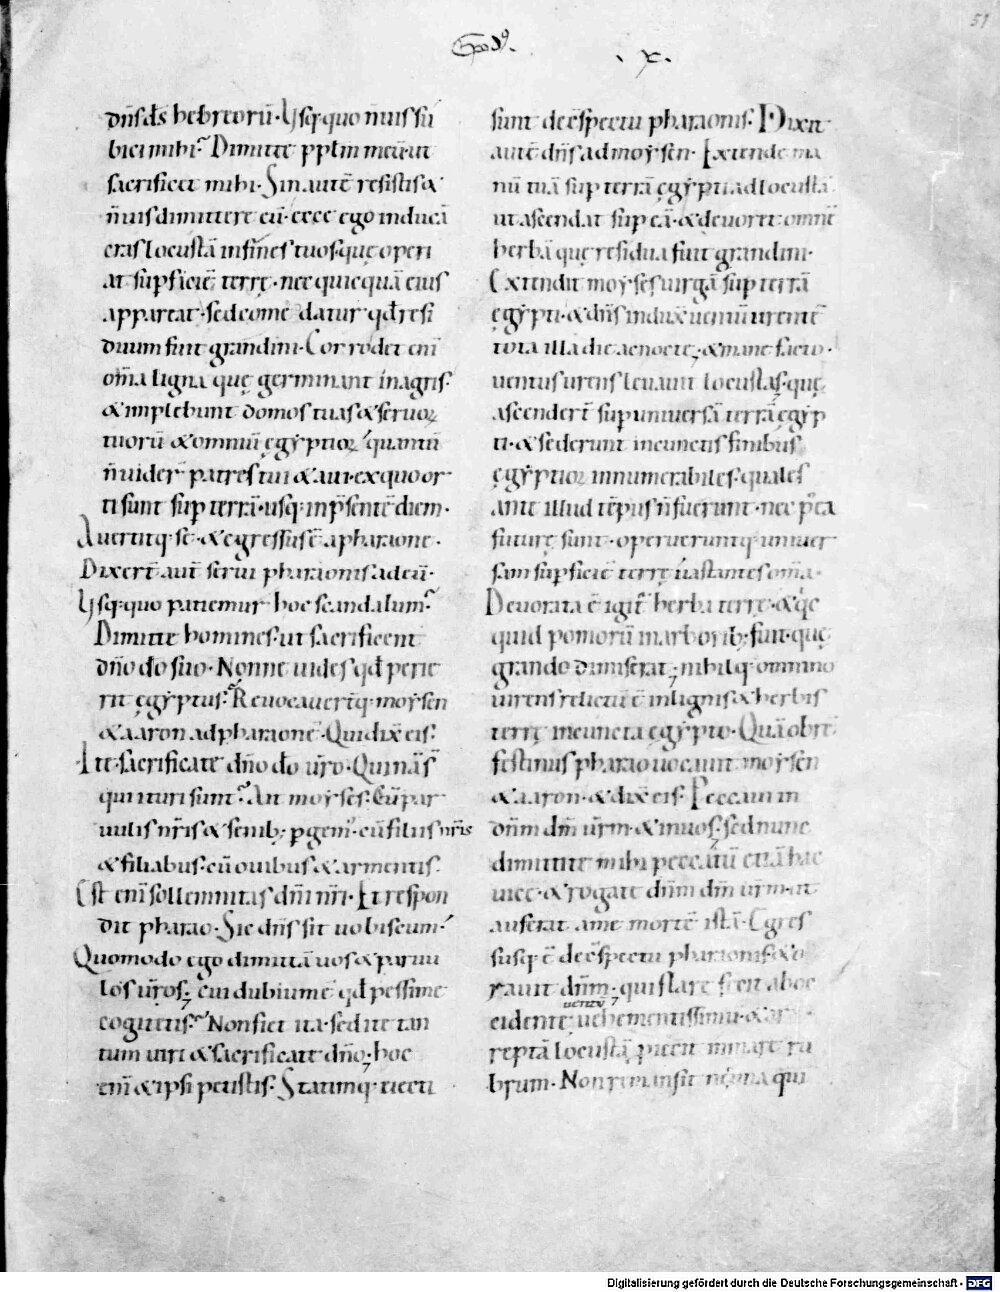 57
Exodꝰ.
· x ·
dn̄s ds̄ hebreorū. Usq; quo n̄ uis sū
bici mihi? Dimitte pplm meū. ut
sacrificet mihi. Sin autē resistis &
n̄ uis dimittere eū. ecce ego inducā
cras locustā in fines tuos. quę operi
at supficiē terrę. nec quicquā eius
appareat. sed comedatur qd resi
duum fuit grandini. Corrodet enī
om̄a ligna quę germinant in agris.
& implebunt domos tuas & seruoꝝ
tuorū & omniū ęgyptioꝝ. quantū
n̄ uider̄ patres tui & aui. ex quo or
ti sunt sup terrā. usq; in p̄sentē diem.
Auertitq; se. & egressus ē a pharaone.
Dixer̄t aut̄ serui pharaonis ad eū.
Usq; quo patiemur hoc scandalum?
Dimitte homines. ut sacrificent
dn̄o dō suo. Nonne uides qd perie
rit ęgyptus? Reuocauer̄tq; moysen
& aaron ad pharaonē. Qui dix̄ eis.
Ite. sacrificate dn̄o dō ur̄o. Qui nā s̄
qui ituri sunt? Ait moyses. Cū par
uulis nr̄is & senib; pgem̄. cū filiis nr̄is
& filiabus. cū ouibus & armentis.
Est enī sollemnitas dn̄i nr̄i. Et respon
dit pharao. Sic dn̄s sit uobiscum.
Quomodo ego dimittā uos & paruu
los ur̄os. cui dubium ē qd pessime
cogitetis? Non fiet ita. sed ite tan
tum uiri & sacrificate dn̄o. hoc
enī & ipsi petistis. Statimq; eiecti
sunt de c̄spectu pharaonis. Dixit
autē dn̄s ad moysen. Extende ma
nū tuā sup terrā ęgypti ad locustā.
ut ascendat sup eā. & deuoret omnē
herbā quę residua fuit grandini.
Extendit moyses uirgā sup terrā
ęgypti. & dn̄s indux̄ uentū urentē
tota illa die ac nocte. & mane facto.
uentus urens leuauit locustas. quę
ascender̄t sup uniuersā terrā ęgyp
ti. & sederunt in cunctis finibus
ęgyptioꝝ innumerabiles. quales
ante illud tēpus n̄ fuerunt. nec p̄ea
futurę sunt. operueruntq; uniuer
sam supficiē terrę uastantes om̄a.
Deuorata ē igit̄ herba terrę. & qc̄
quid pomorū in arborib; fuit. quę
grando dimiserat. nihilq; omnino
uirens relictū ē in lignis & herbis
terrę in cuncta ęgypto. Quā obrē
festinus pharao uocauit moysen
& aaron. & dix̄ eis. Peccaui in
dn̄m dm̄ ur̄m. & in uos. sed nunc
dimittite mihi peccatū etiā hac
uice. & rogate dn̄m dm̄ ur̄m. ut
auferat a me mortē istā. Egres
susq; ē de c̄spectu pharaonis. & o
rauit dn̄m. qui flare fecit ab oc
uentū
cidente uehementissimū. &
reptā locustā piecit in mare ru
brum. Non remansit ne una qui
Digitalisierung gefördert durch die Deutsche Forschungsgemeinschaft - DFG